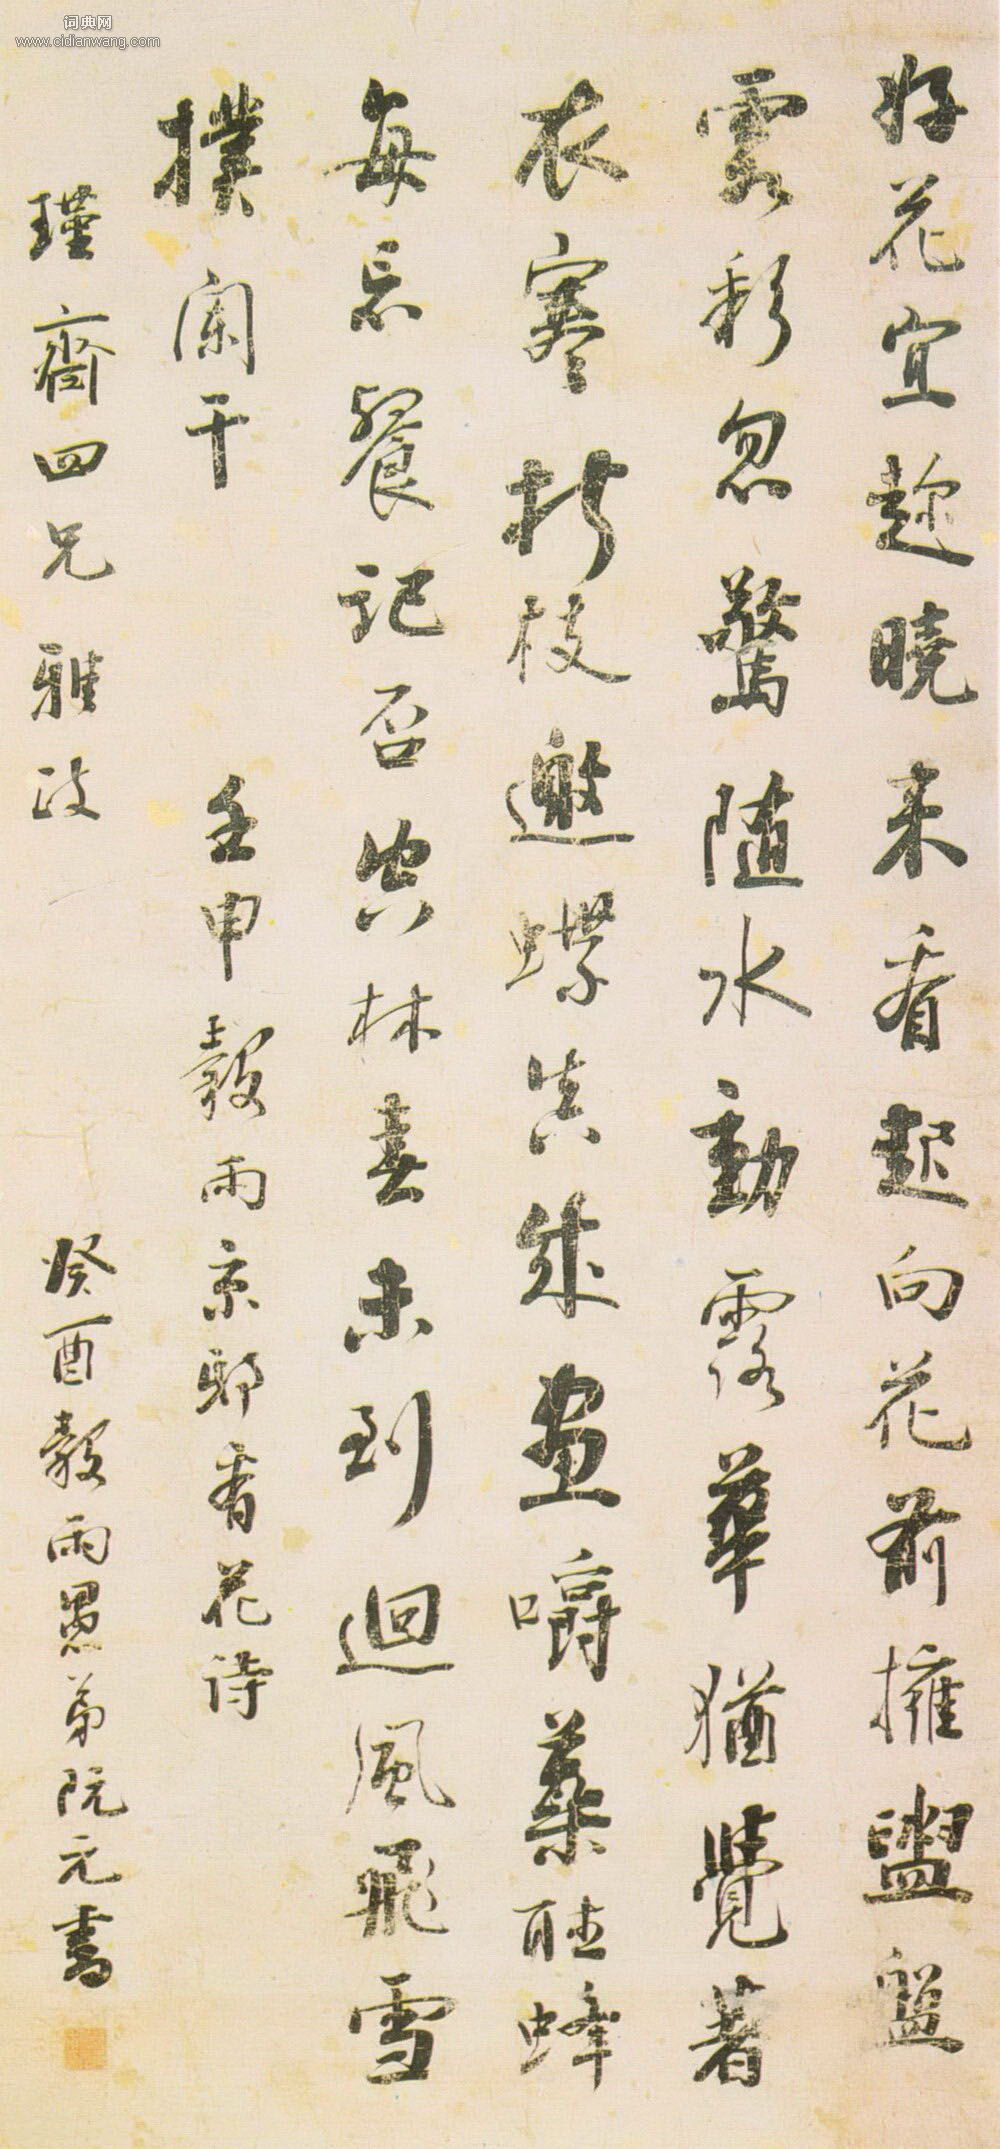 词典网
www.cidianwang.com
好花宜趁曉来看起向花前擁盥盤
雲彩忽驚隨水動露華猶覺著
衣寒折枝邀蝶真成畫嚼蘂聽蜂
每忘餐記否空林春未到迴風飛雪
撲闌干
壬申穀雨京邸看花詩
瑾齋四兄雅政
癸酉穀雨愚弟阮元書